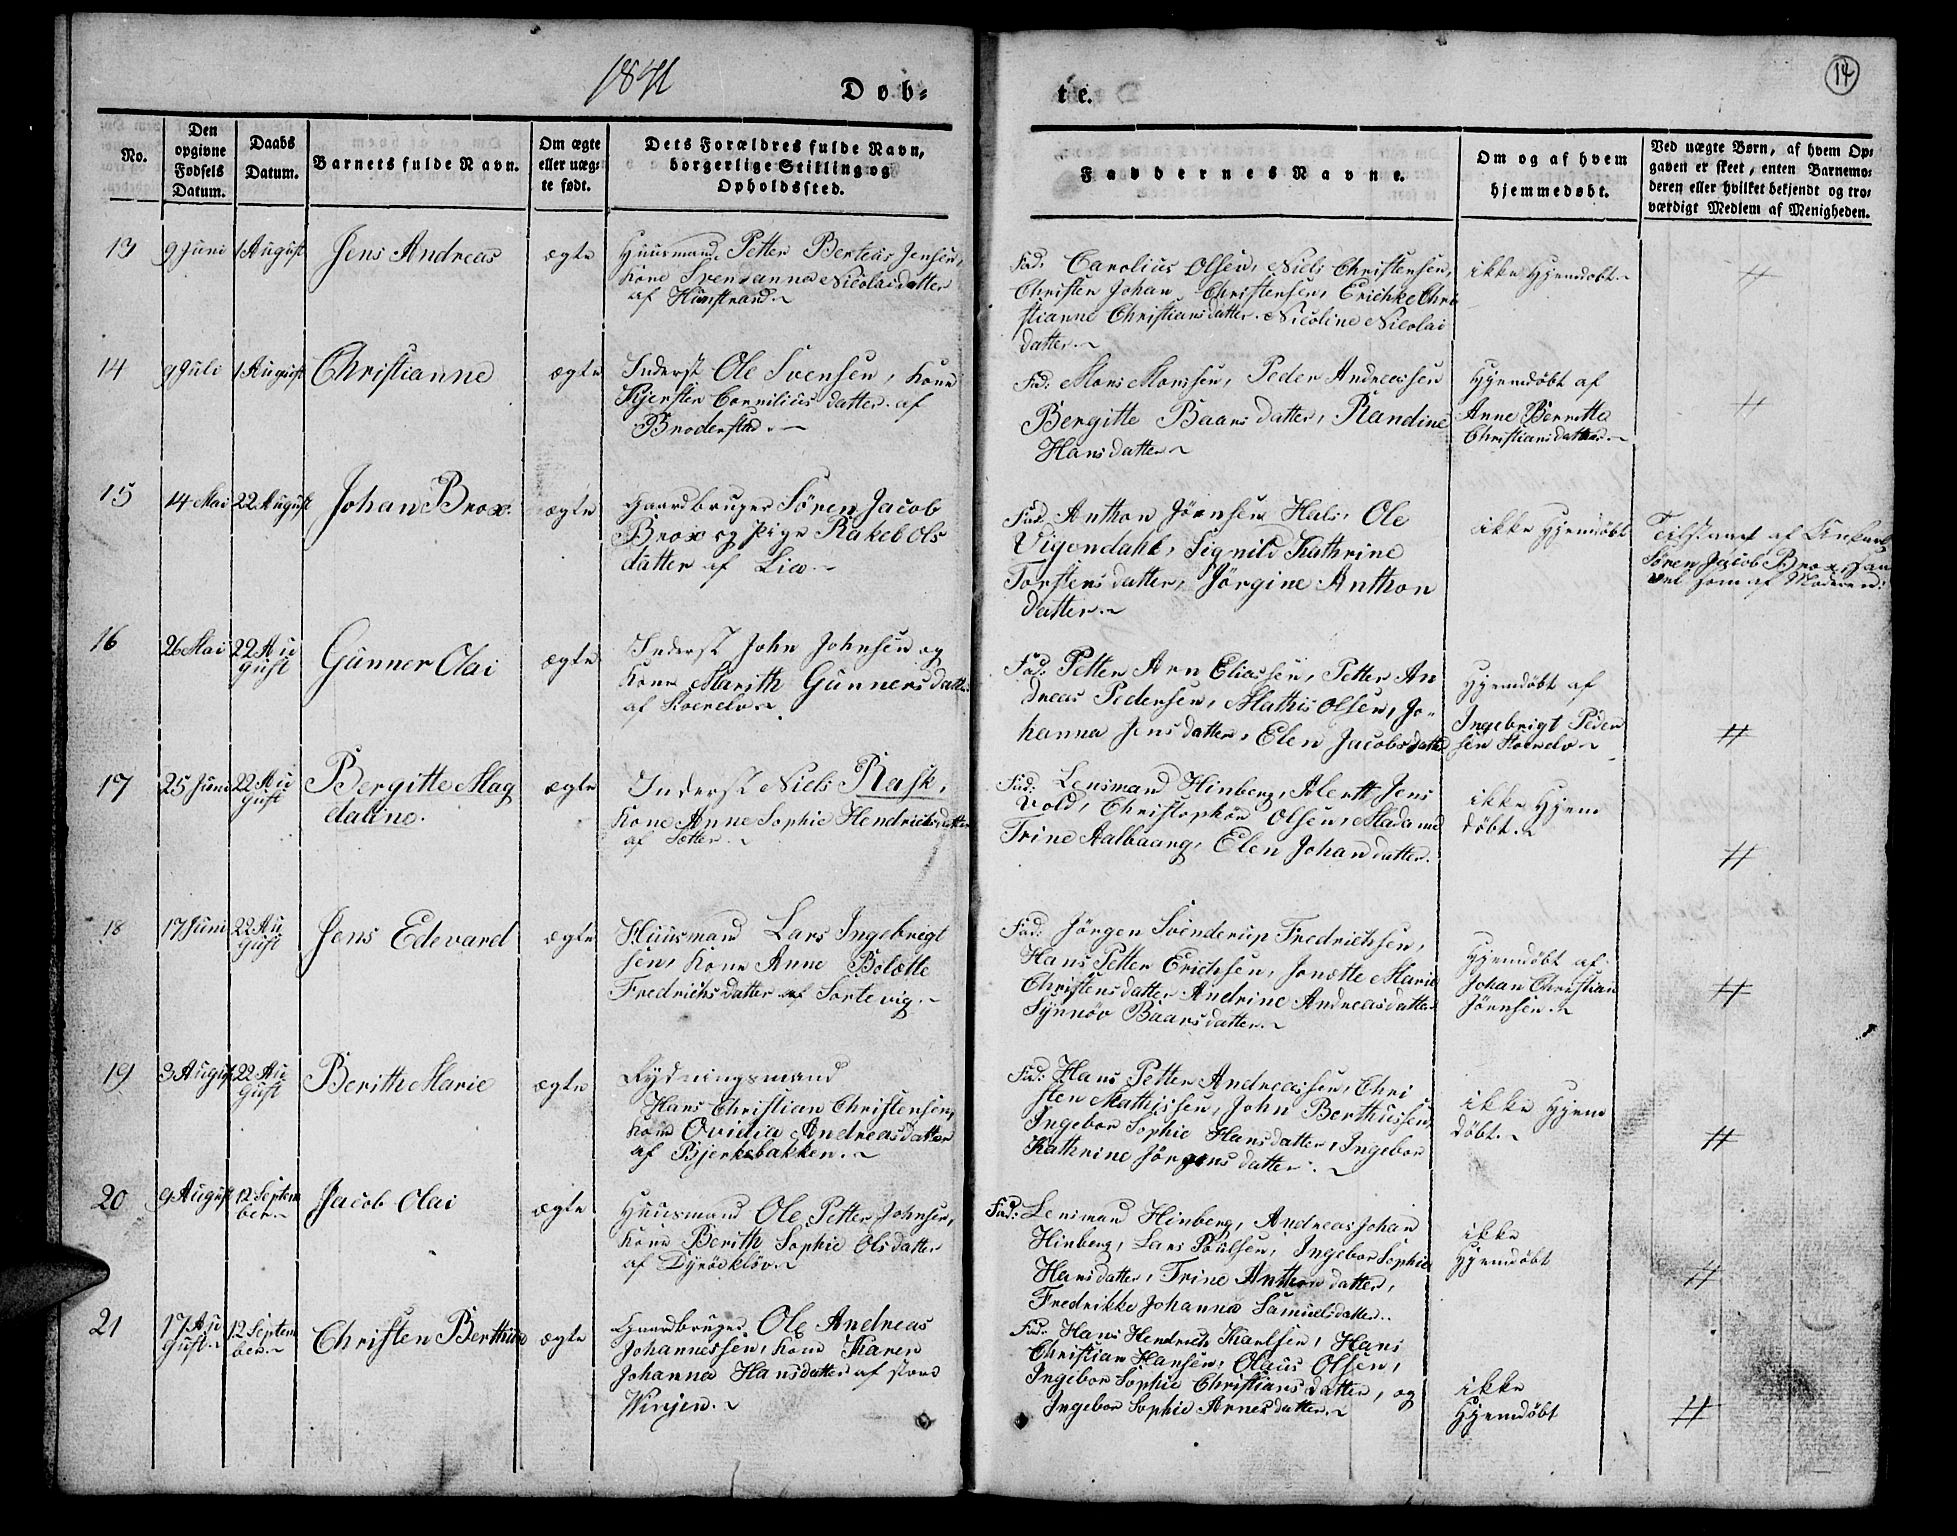 1841
Døb-
te.
14
No.
Den
opgivne
Fødsels
Datum.
Daabs
Datum.
Barnets fulde Navn.
Om ægte
eller uæg-
te født.
Dets Forældres fulde Navn,
borgerlige Stilling og
Opholdssted.
Faddernes Navne.
Om og af hvem
hjemmedøbt.
Ved uægte Børn, af hvem Op-
gaven er skeet, enten Barnemo-
deren eller hvilket bekjendt og tro-
værdigt Medlem af Menigheden.
13
9 Juni
1 August
Jens Andreas
ægte
Huusmand Petter Berteas Jensen,
Kone Svensanna Nicolaidatter
af
Fad: Carolius Olsen, Niels Christensen,
Christen Johan Christensen, Erichke Chri
stianne Christiansdatter. Nicoline Nicolai
datter.
ikke Hjemdøbt.
14
9 Juli
1 August
Christianne
ægte
Inderst Ole Svensen, Kone
Kjersten Cornilius datter af
Broderstad.
Fad: Mons Monssen, Peder Andreassen
Bergitte Baars datter, Randine
Hansdatter
Hjemdøbt af
Anne Berritha
Christiansdatter.
15
14 Mai
22 August
Johan Brox.
ægte
Gaardbruger Søren Jacob
Brox og Pige Rakel Ols
datter af Liv.
Fad: Anthon Jørnsen Hals, Ole
Vigendahl, Signild Kathrine
Torstens datter, Jörgine Anthon
datter.
ikke Hjemdøbt
Tilstaaet af
Søren Jacob Brox, saa
vel som af Moderen.
16
26 Mai
22 Au
gust
Gunner Olai
ægte
Inderst John Johnsen og
Kone Marith Gunners datter
af
Fad: Petter Arn Eliassen, Petter An
dreas Pedersen, Mathis Olsen, Jo-
hanna Jensdatter, Elen Jacobsdatter
Hjemdøbt af
Ingebrigt Peder
sen
17
25 Juni
22 Au
gust
Bergitte Mag
daline.
ægte
Inderst Niels Rask,
Kone Anne Sophie Hendrichsdatter
af Sætter.
Fad: Lensmand Hinberg, Alertt Jens
Vold, Christophor Olsen, Madame
Trine Aalbaang, Elen Johandatter.
ikke Hjem
døbt.
18
17 Juni
22 Au
gust
Jens Edevard
ægte
Huusmand Lars Ingebrigt
sen, Kone Anne Bolætte
Fredrichs datter af Sortevig.
Fad: Jörgen Svenderup Fredrichsen,
Hans Petter Erichsen, Jonætte Marie
Christensdatter Andrine Andreasdatter
Synnöv Baarsdatter.
Hjemdøbt af
Johan Christian
Jörnsen.
19
3 August
22 Au
gust
Berith Marie
ægte
Rydningsmand
Hans Christian Christensen,
Kone Ovidia Andreasdatter
af Bjerkebakken.
Fad: Hans Petter Andreassen, Chri
sten Mathissen, John Berthussen,
Ingebor Sophie Hansdatter, Ingebor
Kathrine Jörgensdatter.
ikke Hjem
døbt.
20
9 August
12 Septem
ber.
Jacob Olai
ægte
Huusmand Ole Petter Johnsen,
Kone Berith Sophie Olsdatter
af Dyröeklöv.
Fad: Lensmand Hinberg, Andreas Johan
Hinberg, Lars Poulsen, Ingebor Sophie
Hansdatter, Trine Anthon datter,
Fredrikke Johanna Samuelsdatter.
ikke
Hjemdøbt
21
17 Au
gust.
12 Septem
ber.
Christen Berthus
ægte
Gaardbruger Ole Andreas
Johannessen, Kone Karen
Johanna Hansdatter af store
Winjen.
Fad: Hans Hendrich Karlsen, Hans
Christian Hansen, Olaus Olsen,
Ingebor Sophie Christiansdatter, og
Ingebor Sophie Arnesdatter.
ikke
Hjemdøbt